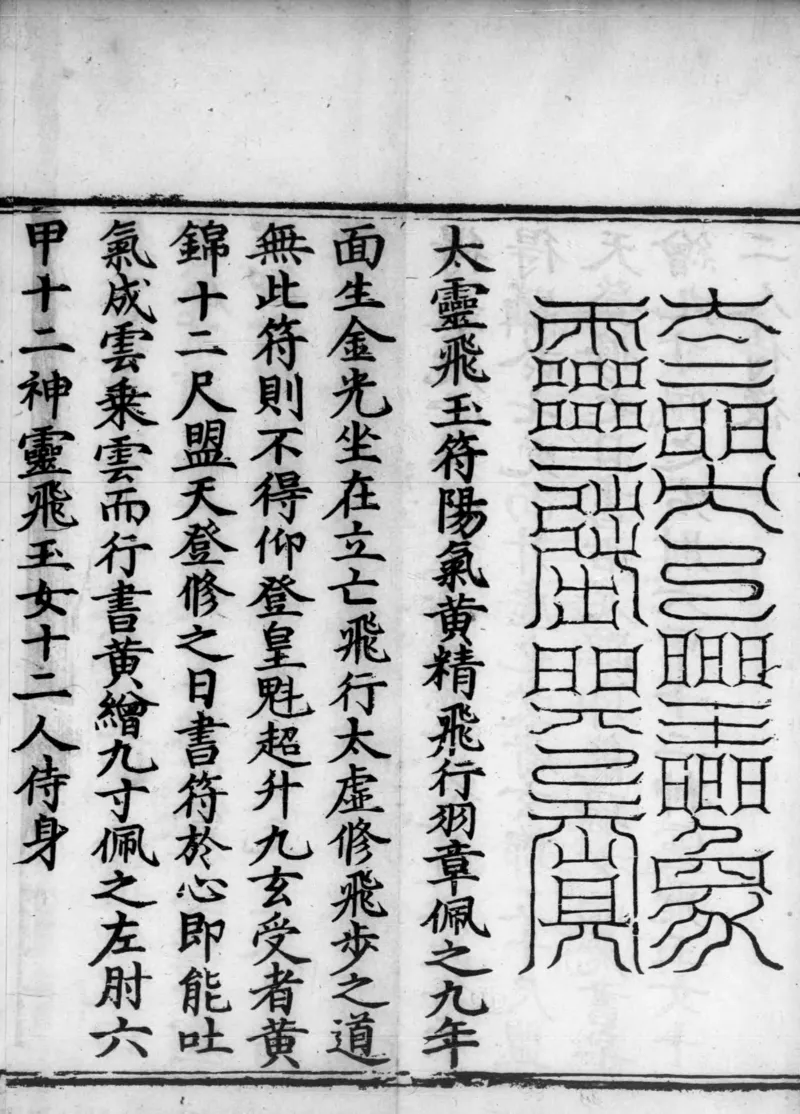 太靈飛玉符陽氣黄精飛行羽章佩之九年
面生金光坐在立亡飛行太虛修飛步之道
無此符則不得仰登皇魁超升九玄受者黄
錦十二尺盟天登修之日書符於心即能吐
氣成雲乗雲而行書黄繒九寸佩之左肘六
甲十二神靈飛玉女十二人侍身